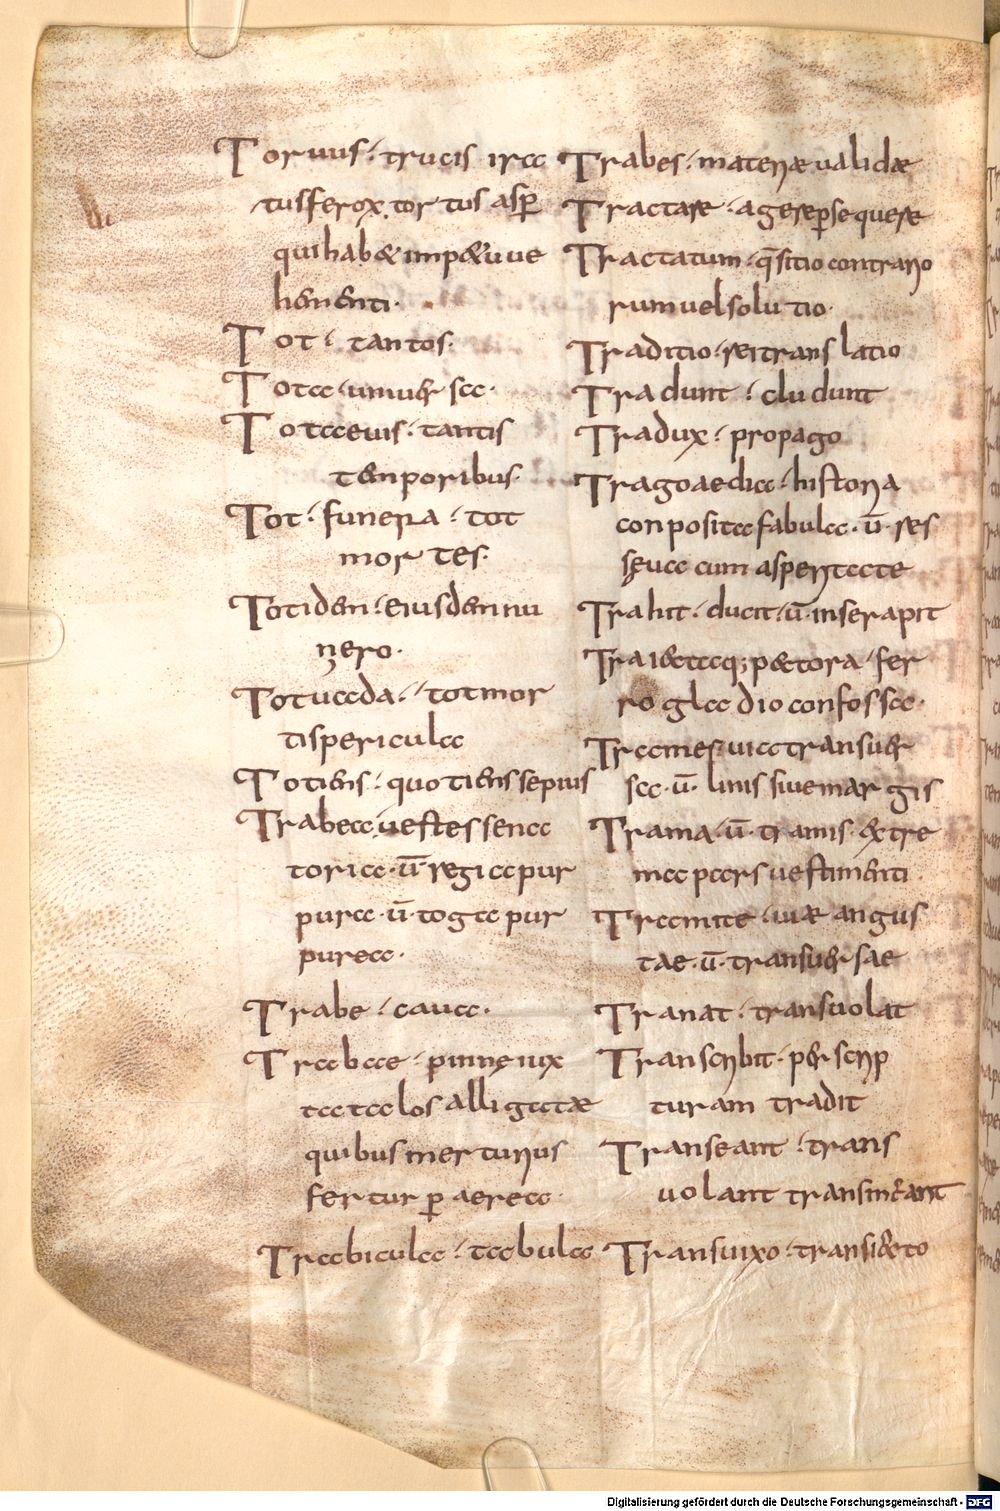 Toruus· trucis ira
tusferox tortus asp̄
quihab&imp&uue
hementi·
Tot· tantos·
Tota·uniuersa·
Totaeuis·tantis
temporibus·
Tot·funera·tot
mortes·
Totidem·eiusdemnu
mero·
Totuada·totmor
tispericula
Totiens·quotienssepius
Trabea·uestessena
toria·ū·regiapur
pura·ū·togapur
purea·
Trabe·caua·
Trabae·pinnęuix
taetaelos alligatæ
quibusmerturius
ferturp̄aerea·
Trabicula·tabula
Trabes·materiæualidæ
Tractare·agerepsequere
Tractatum·q̄sitiocontrario
rumuelsolutio·
Traditio·reitranslatio
Tradunt·cludunt
Tradux·propago
Tragoaedia·historia
conpositafabula·ū·res
sęuacumasperitate
Trahit·ducit·ū·inserapit
Trai&taq;p&tora·fer
rogladioconfossa·
Trames·uiatransuer
sa·ū·limissiuemargis
Trama·ū·tramis·&tre
maparsuestimenti·
Tramite·uiæangus
tae·ū·transuersae
Tranat·transuolat
Transcribit·perscrip
turamtradit
Transeant·trans
uolanttransmeant
Transuixo·transi&to
Digitalisierung gefördert durch die Deutsche Forschungsgemeinschaft - DFG